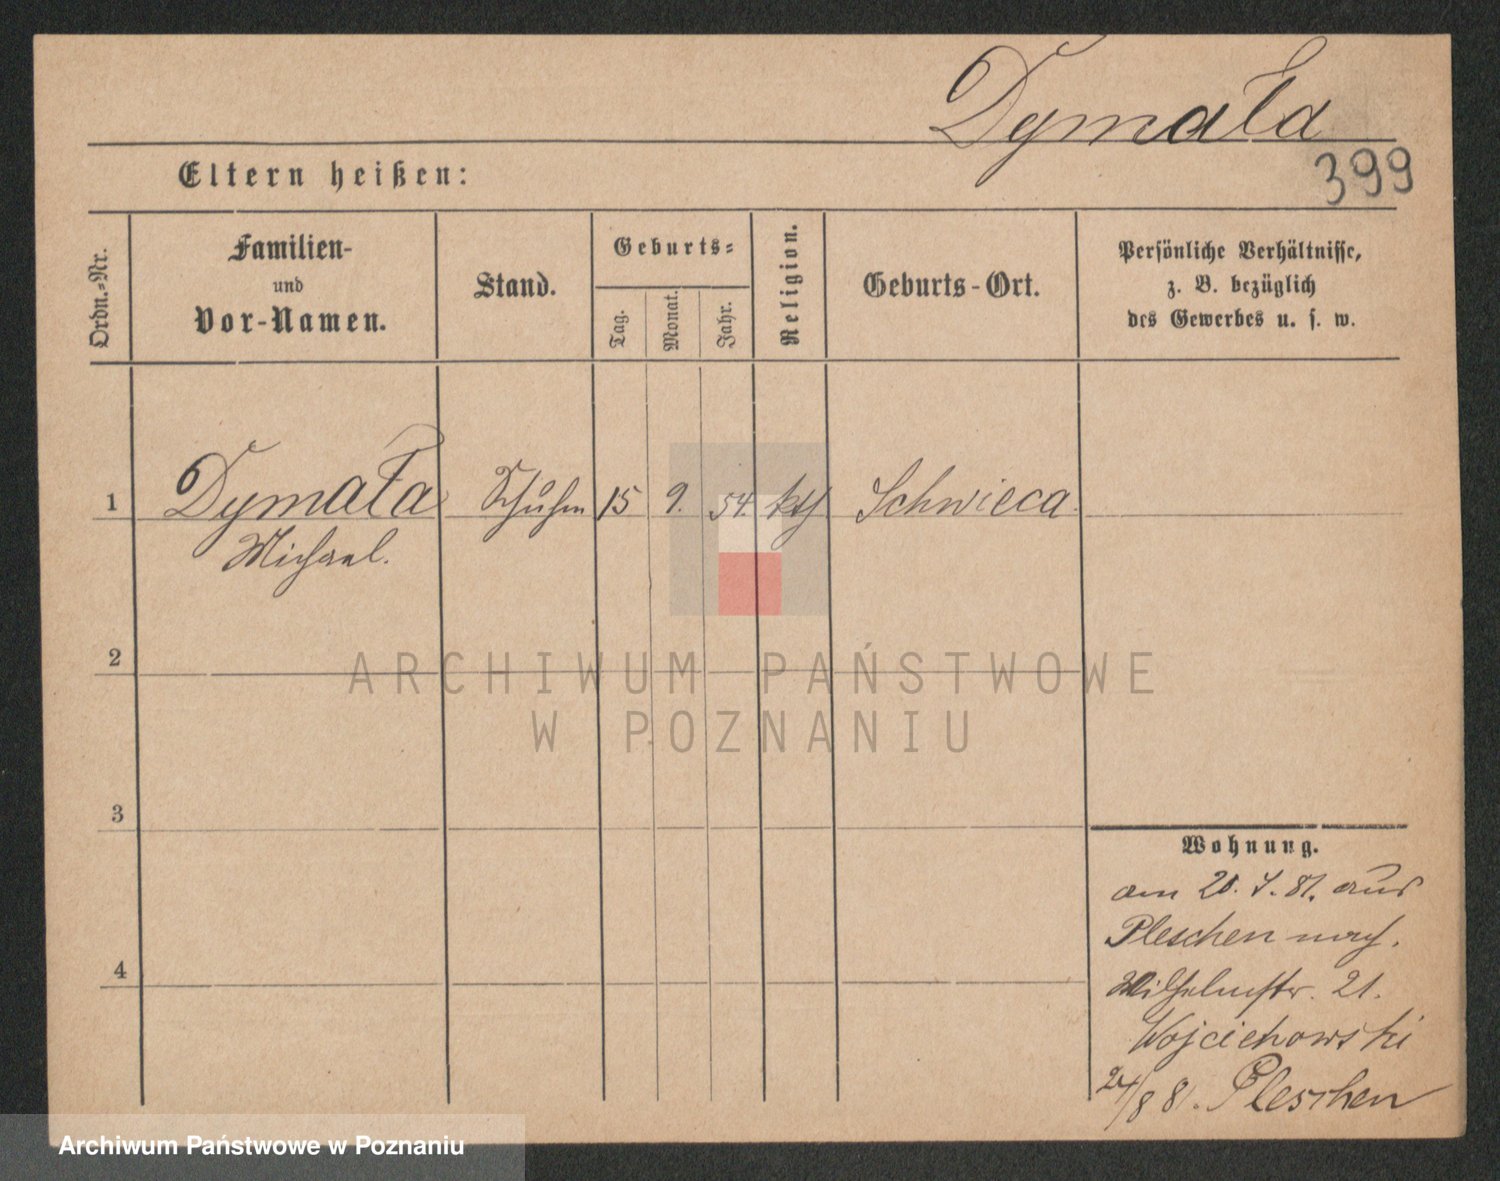 Dymała
399
Eltern heißen:
Ordn.-Nr.
Familien-
und
Vor-Namen.
Stand.
Geburts-
Tag.
Monat.
Jahr.
Religion.
Geburts-Ort.
Persönliche Verhältnisse,
z. B. bezüglich
des Gewerbes u. s. w.
1 Dymała Schuhm 15 9. 54. kth Schwieca
Michael.
2
ARCHIWUM PAŃSTWOWE
W POZNANIU
3
Wohnung.
am 20. 7. 81. aus
Pleschen nach.
4
Wilhelmstr. 21.
Wojciechowski
24/8 81. Pleschen
Archiwum Państwowe w Poznaniu